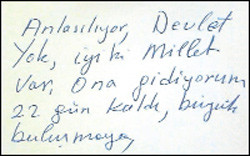 Anlaşılıyor, Devlet
Yok, iyi ki Millet
Var, Ona gidiyorum
22 gün kaldı, büyük
buluşmaya